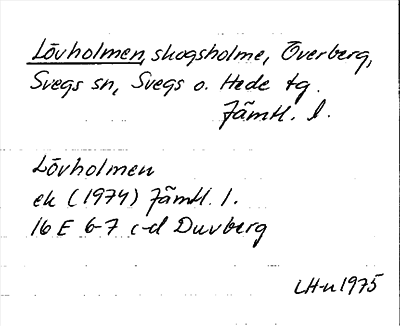 Lövholmen, skogsholme, Överberg,
Svegs sn, Svegs o. Hede tg.
Jämtl. l.
Lövholmen
ek (1974) Jämtl. l.
16 E 6-7 c-d Duvberg
LH-n 1975